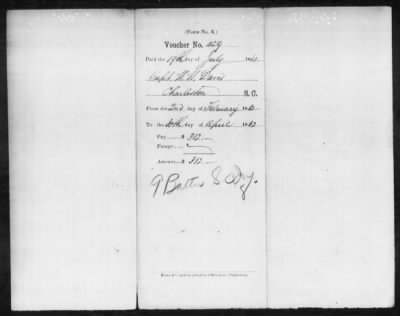 (Form No. 3.)
Voucher No. 429
Paid the 19th day of July 186
Capt. W. W. Davis
Charleston S. C.
From the 2nd day of February 186
To the 30th day of April 1862
Pay $ 312
Forage
Amount $ 312
9 Battn S. C. V.